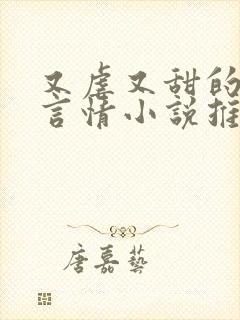 又虐又甜的
言情小說推
唐嘉藝